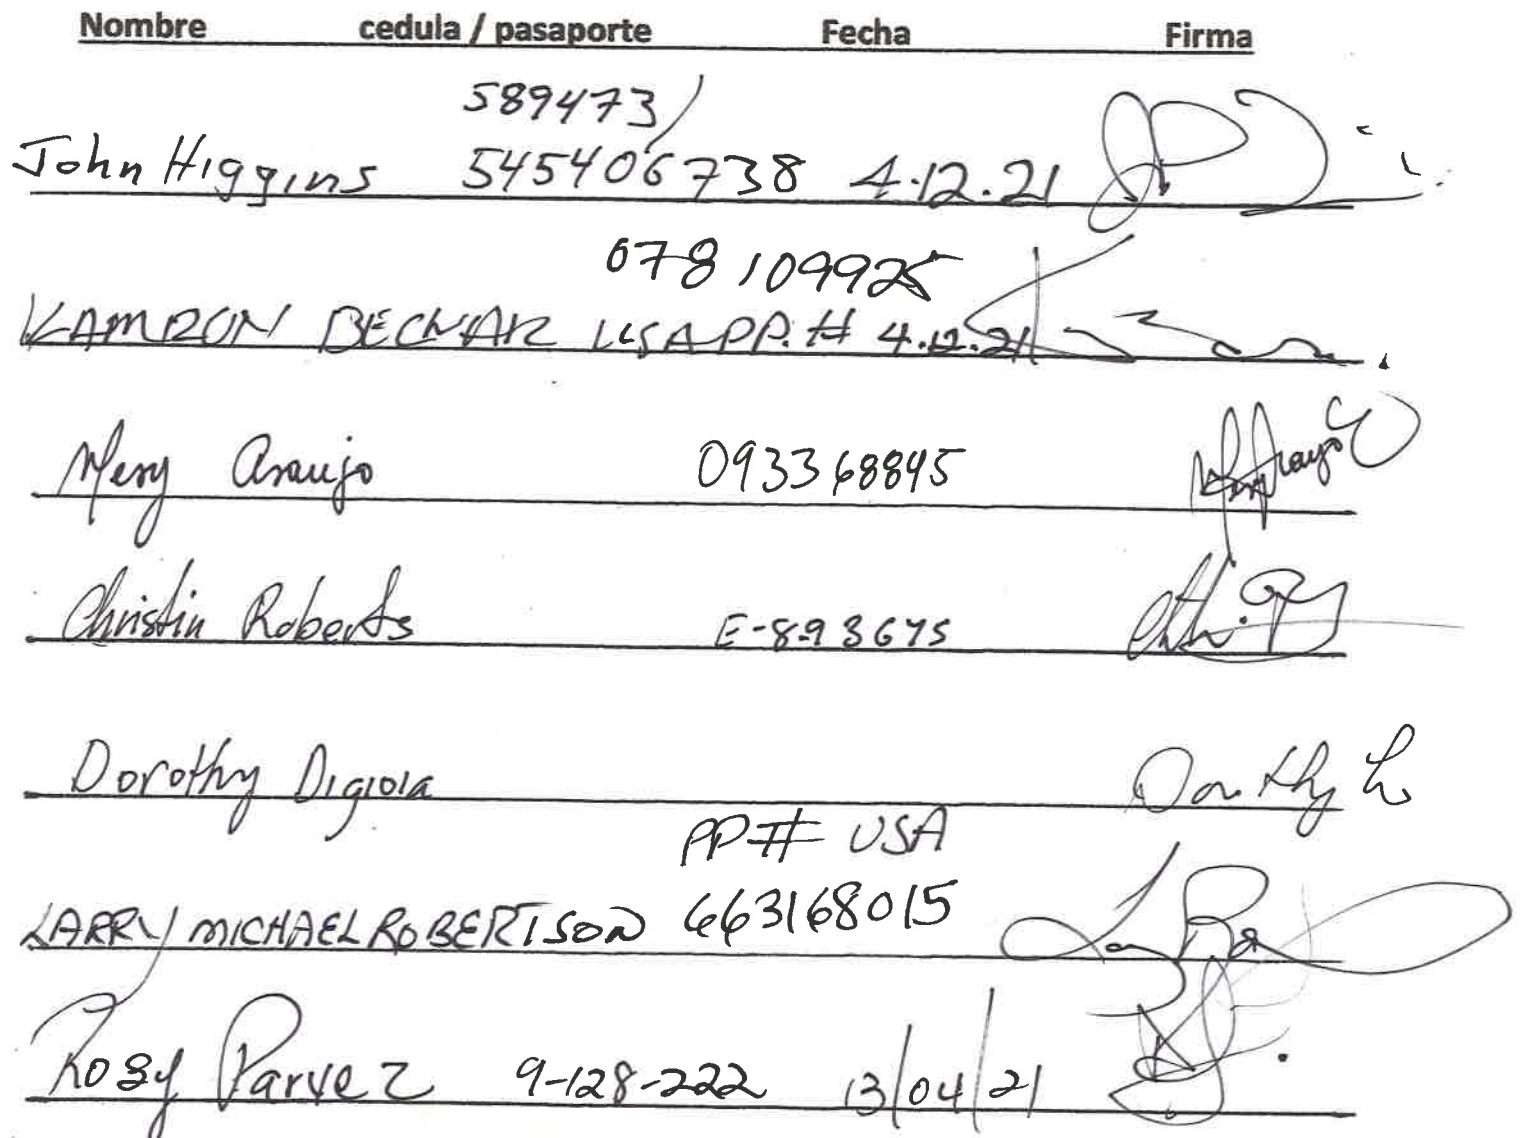 Nombre cedula / pasaporte Fecha Firma
589473/
John Higgins 545406738 4.12.21
078109925
KAMRON BECNAR USA PP. # 4.12.21
Mery Araujo 093368845
Christin Roberts E-8-93675
Dorothy Digioia Dorothy
PP# USA
LARRY MICHAEL ROBERTSON 663168015
Rosy Parvez 9-128-222 13/04/21